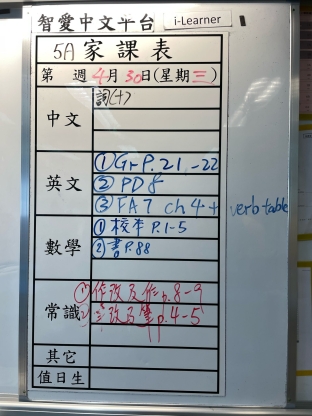 智愛中文平台 i-Learner
5A 家課表
第 週 4月30日(星期三)
中文 詞(十)
英文 ① Gr P.21-22
② PD 8
③ FA7 ch 4 + verb table
數學 ① 校本 P.1-5
② 書 P.88
常識 ① 作改及作 p.8-9
② 改及筆 p.4-5
其它
值日生